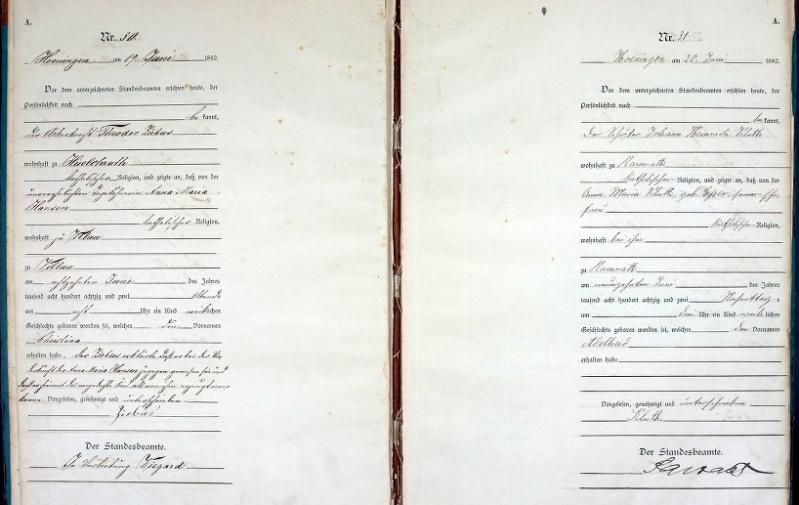 A.
Nr. 30.
Hoeningen am 19 Juni 1882.
Vor dem unterzeichneten Standesbeamten erschien heute, der
Persönlichkeit nach
be kannt,
der Ackerknecht Theodor
wohnhaft zu
katholischer Religion, und zeigte an, daß von der
unverehelichten Anna Maria
Hansen
katholischer Religion,
wohnhaft zu Villau
zu Villau
am achtzehnten Juni des Jahres
tausend acht hundert achtzig und zwei Abends
um acht Uhr ein Kind weiblichen
Geschlechts geboren worden sei, welches den Vornamen
Christina
erhalten habe. Der erklärte daß er bei der Nie
derkunft der Anna Maria Hansen zugegen gewesen sei und
Kind als von ihm erzeugt aner
kenne. Vorgelesen, genehmigt und unterschrieben
Der Standesbeamte.
In Vertretung Wiezard
A.
Nr. 31
Hoeningen am 20. Juni 1882.
Vor dem unterzeichneten Standesbeamten erschien heute, der
Persönlichkeit nach
be kannt,
Der Schuster Johann Heinrich Kluth
wohnhaft zu Ramrath
katholischer Religion, und zeigte an, daß von der
Anna Maria Kluth, geb. seiner Ehe
frau
katholischer Religion,
wohnhaft bei ihm
zu Ramrath
am neunzehnten Juni des Jahres
tausend acht hundert achtzig und zwei Nachmittags
um drei Uhr ein Kind weiblichen
Geschlechts geboren worden sei, welches den Vornamen
Adelheid
erhalten habe
Vorgelesen, genehmigt und unterschrieben
Kluth
Der Standesbeamte.